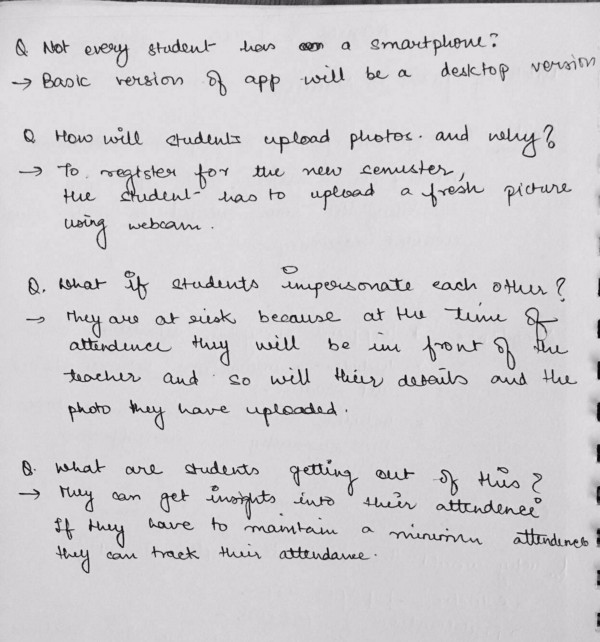 Q Not every student has a smartphone?
→ Basic version of app will be a desktop version
Q How will students upload photos. and why?
→ To register for the new semester,
the student has to upload a fresh picture
using webcam.
Q. What if students impersonate each other?
→ They are at risk because at the time of
attendence they will be in front of the
teacher and so will their details and the
photo they have uploaded.
Q. What are students getting out of this?
→ They can get insights into their attendence
If they have to maintain a minimum attendence
they can track their attendance.